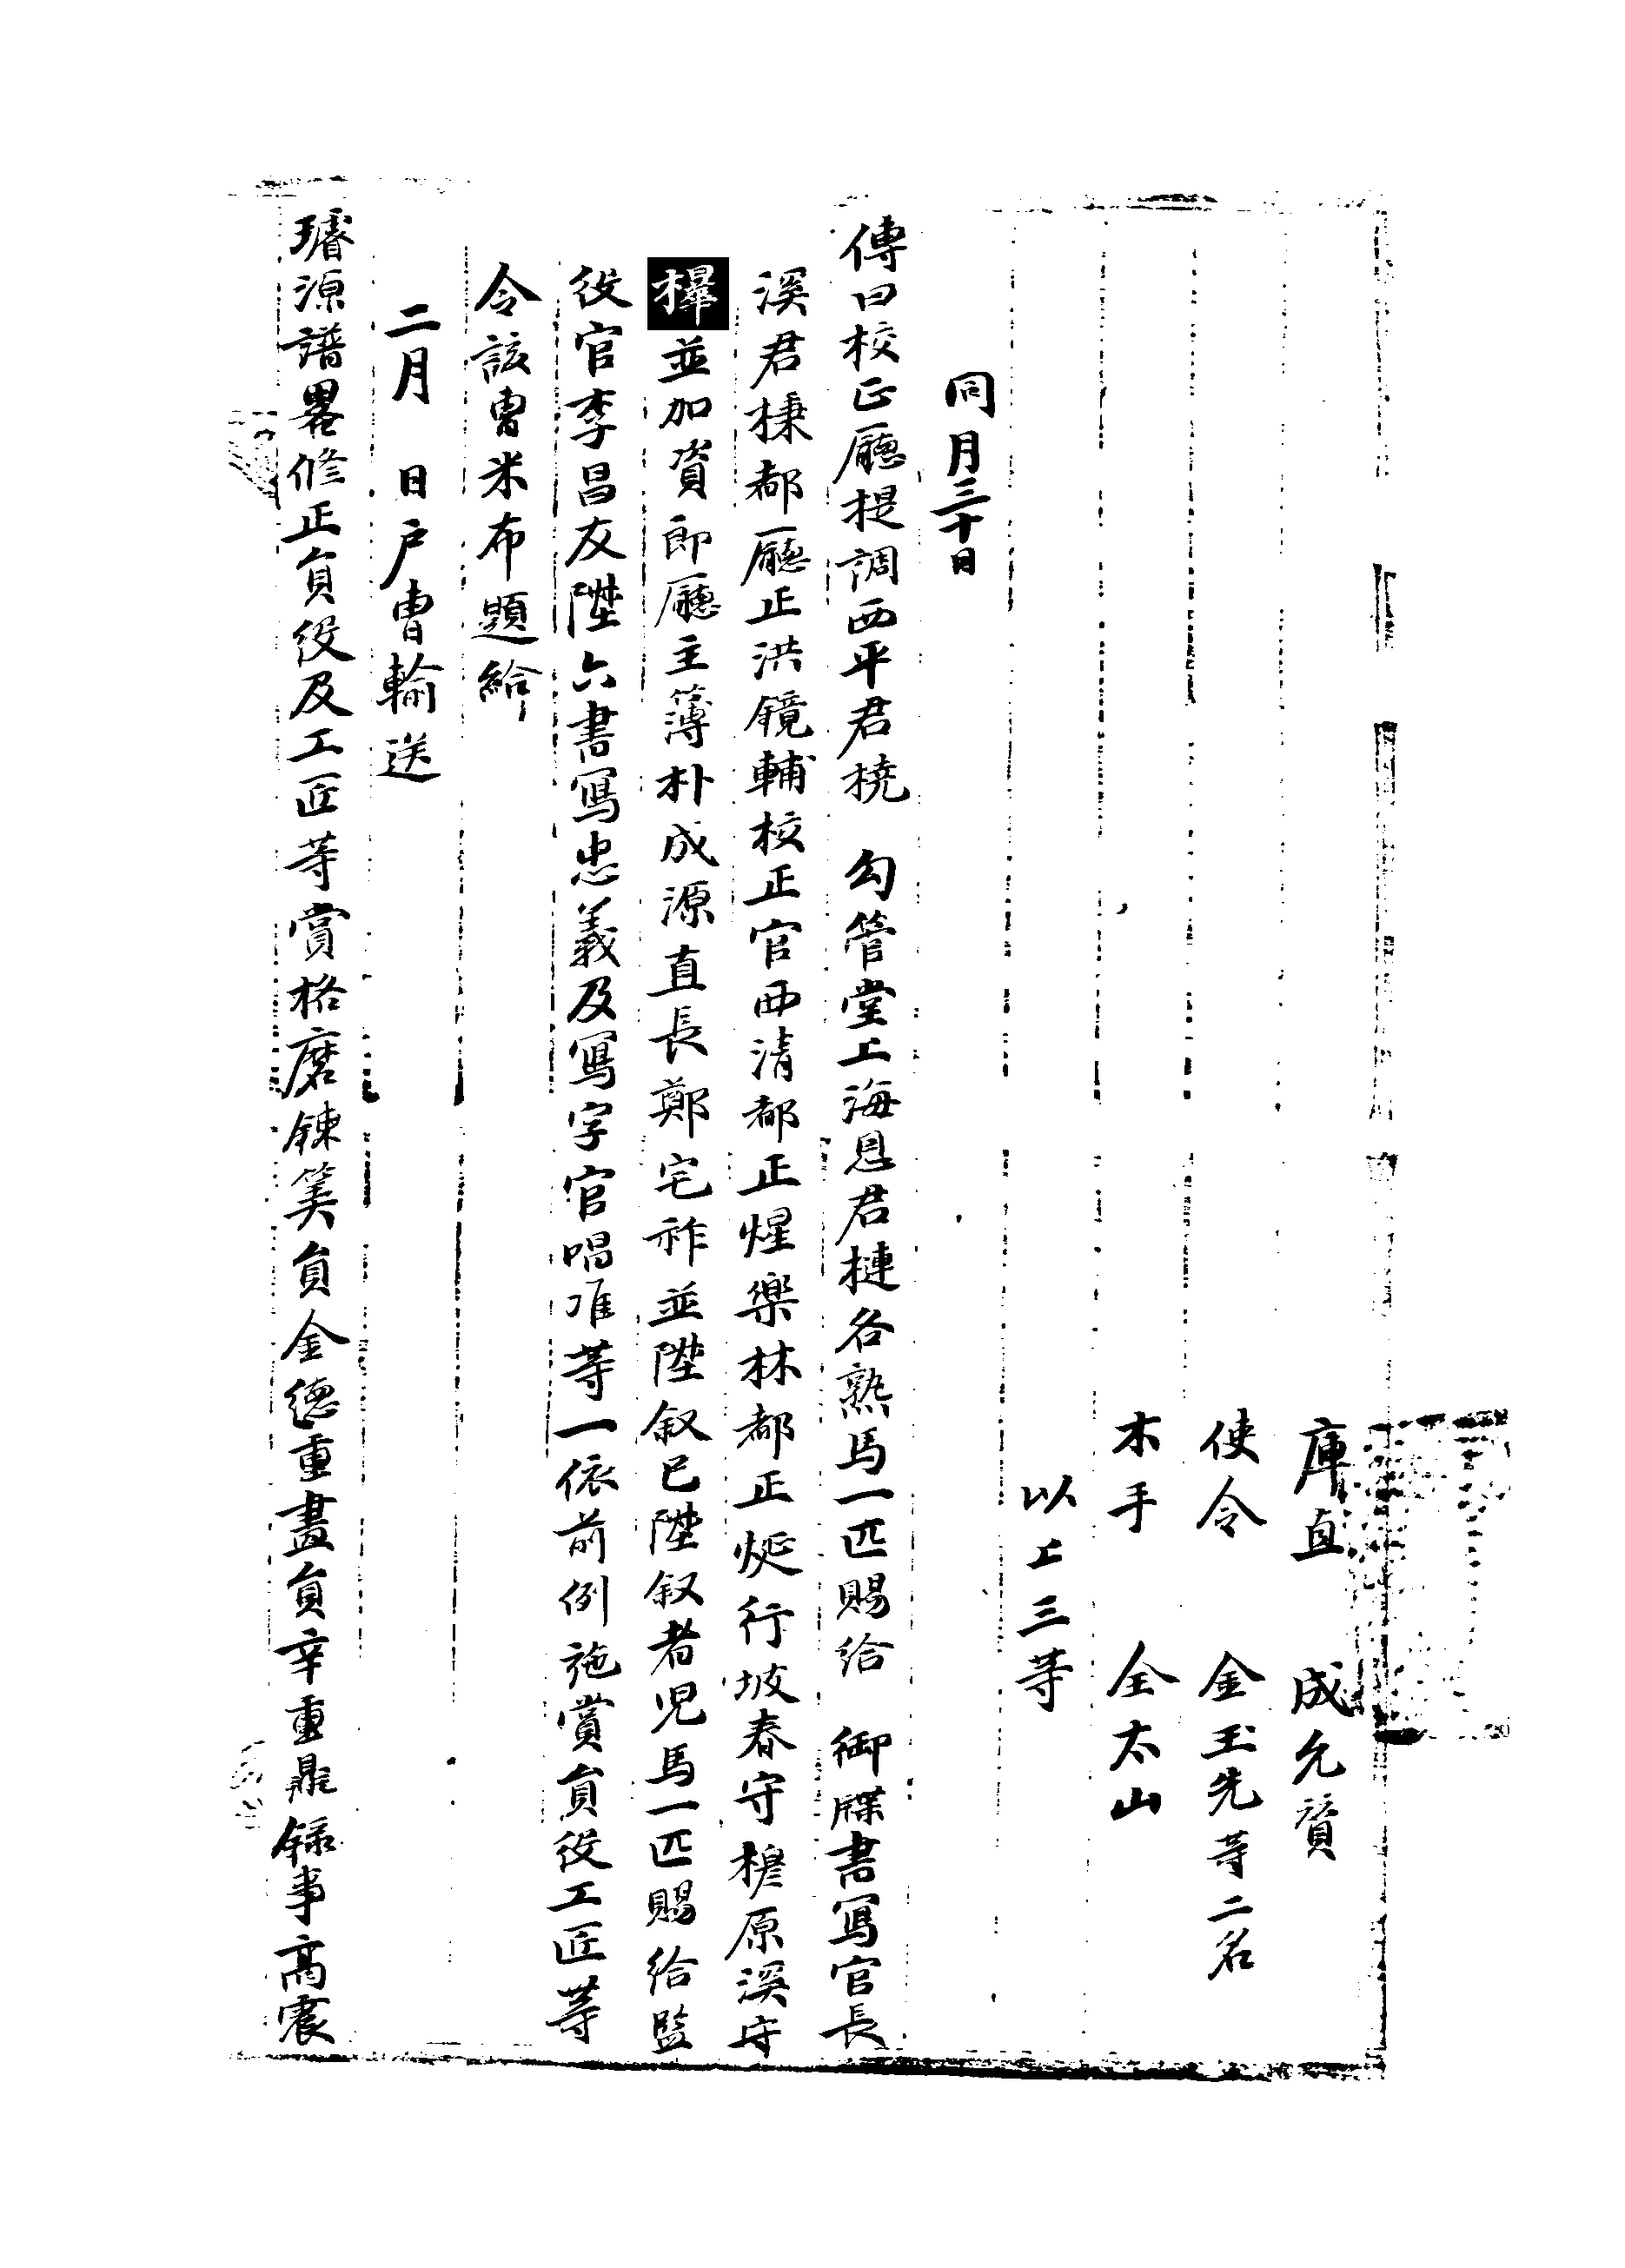 庫直 成允贇
使令 金玉先等二名
木手 全太山
以上三等
同月三十日
傳曰校正廳提調西平君橈 勾管堂上海恩君槤各熟馬一匹賜給 御牒書寫官長
溪君棅都廳正洪鏡輔校正官西清都正煋樂林都正烻行坡春守樛原溪守
樺並加資郎廳主簿朴成源直長鄭宅祚並陞叙已陞叙者児馬一匹賜給監
役官李昌友陞六書寫忠義及寫字官唱准等一依前例施賞員役工匠等
令該曺米布題給
二月 日戶曺輸送
璿源譜畧修正員役及工匠等賞格磨鍊筭員金德重畫員辛重鼎録事高震